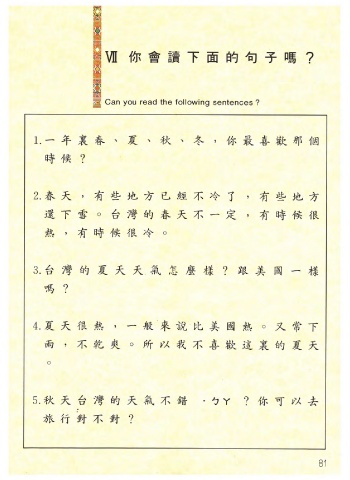 Ⅶ 你會讀下面的句子嗎？
Can you read the following sentences？
1.一年裏春、夏、秋、冬，你最喜歡那個
時候？
2.春天，有些地方已經不冷了，有些地方
還下雪。台灣的春天不一定，有時候很
熱，有時候很冷。
3.台灣的夏天天氣怎麼樣？跟美國一樣
嗎？
4.夏天很熱，一般來說比美國熱。又常下
雨，不乾爽。所以我不喜歡這裏的夏天
。
5.秋天台灣的天氣不錯 ˙ㄅㄚ ？你可以去
旅行對不對？
81